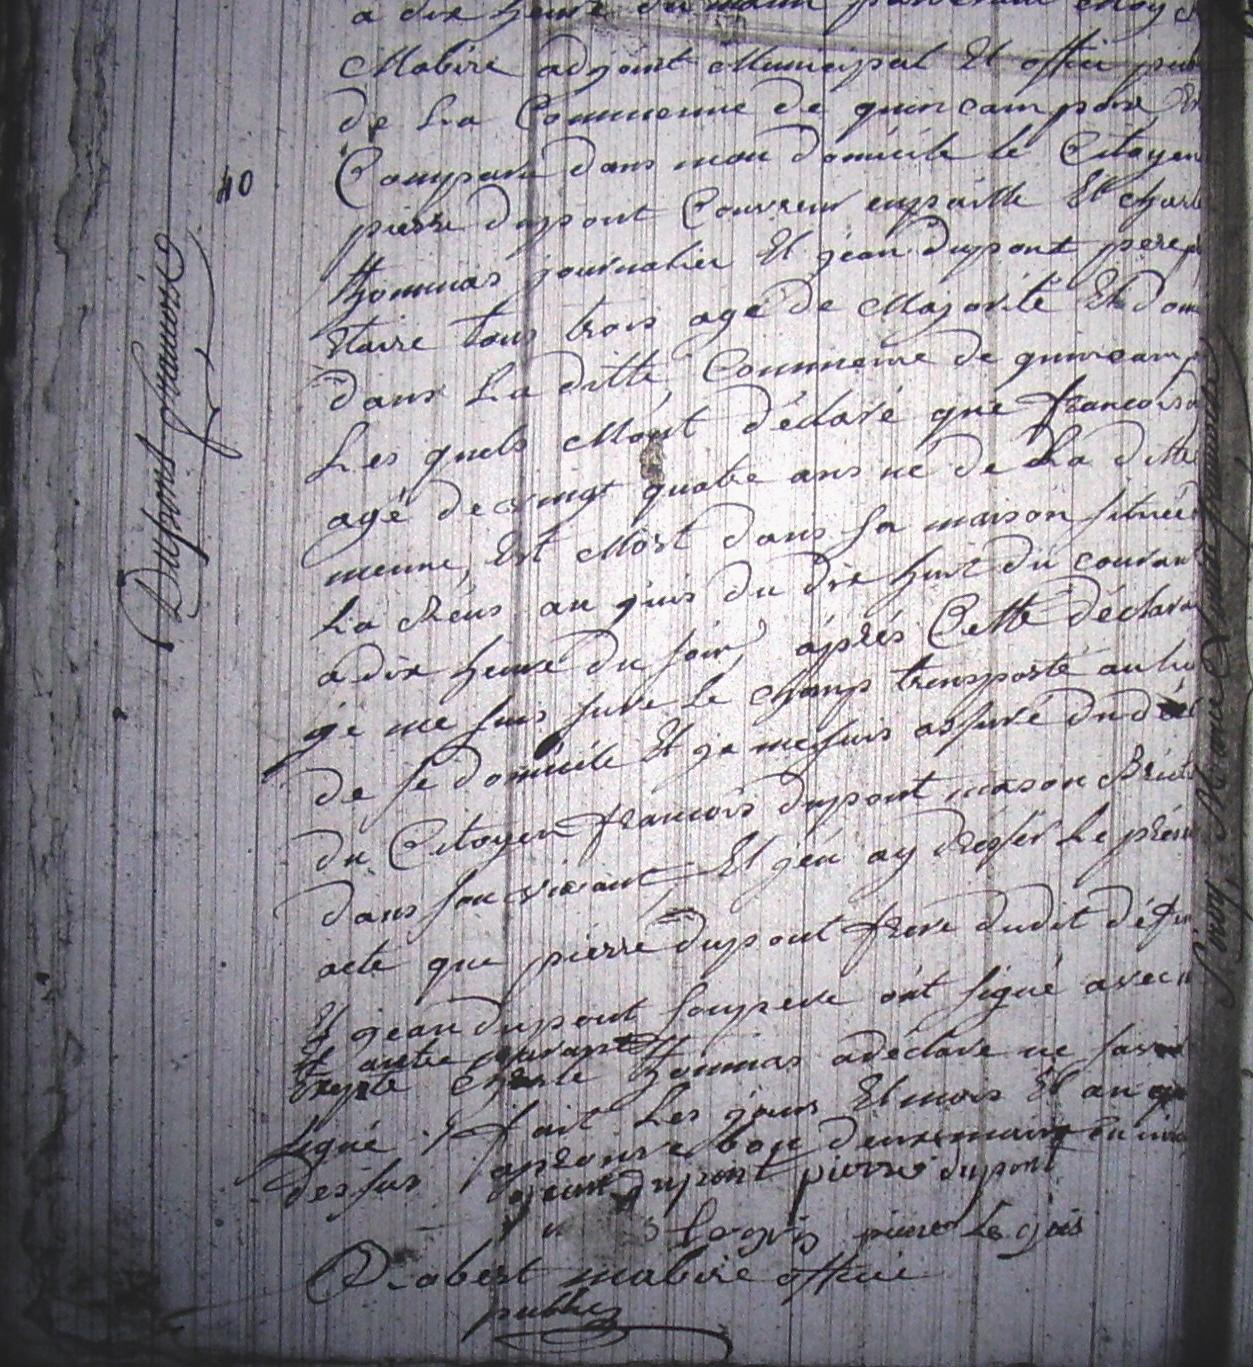 a dix heure du matin par devant moy
Mabire adjoint Municipal Et offici pub
de La Commenne de quincampoix
Comparu dans mon domicile le Citoyen
40
pierre dupont Couvreur enpaille Et charle
thommas journalier Et jean dupont pere
Etaire tous trois agé de Majorité Et dom
dans La ditte Commenne de quincamp
Les quels Mont déclaré que francois d
agé de vingt quatre ans né de La ditte
menne, Est Mort dans sa maison située
La au du dix huit du courant
a dix heure du soir, aprés Cette déclara
je me suis sure Le champ transporté au lieu
de se domicile Et je me suis assuré du dé
du Citoyen francois dupont mason
dans son vivant, Et jén ay Le présen
acte que pierre dupont frere dudit défun
Et jean dupont sonpere ont signé avec
Et autre
Exepté Charle thommas a déclare ne savoir
signé fait Les jours Et mois Et an que
dessus aprouve bon deux
jean dupont pierre dupont
Legris pierre Le gris
Robert mabire offici
public
Dupont francois